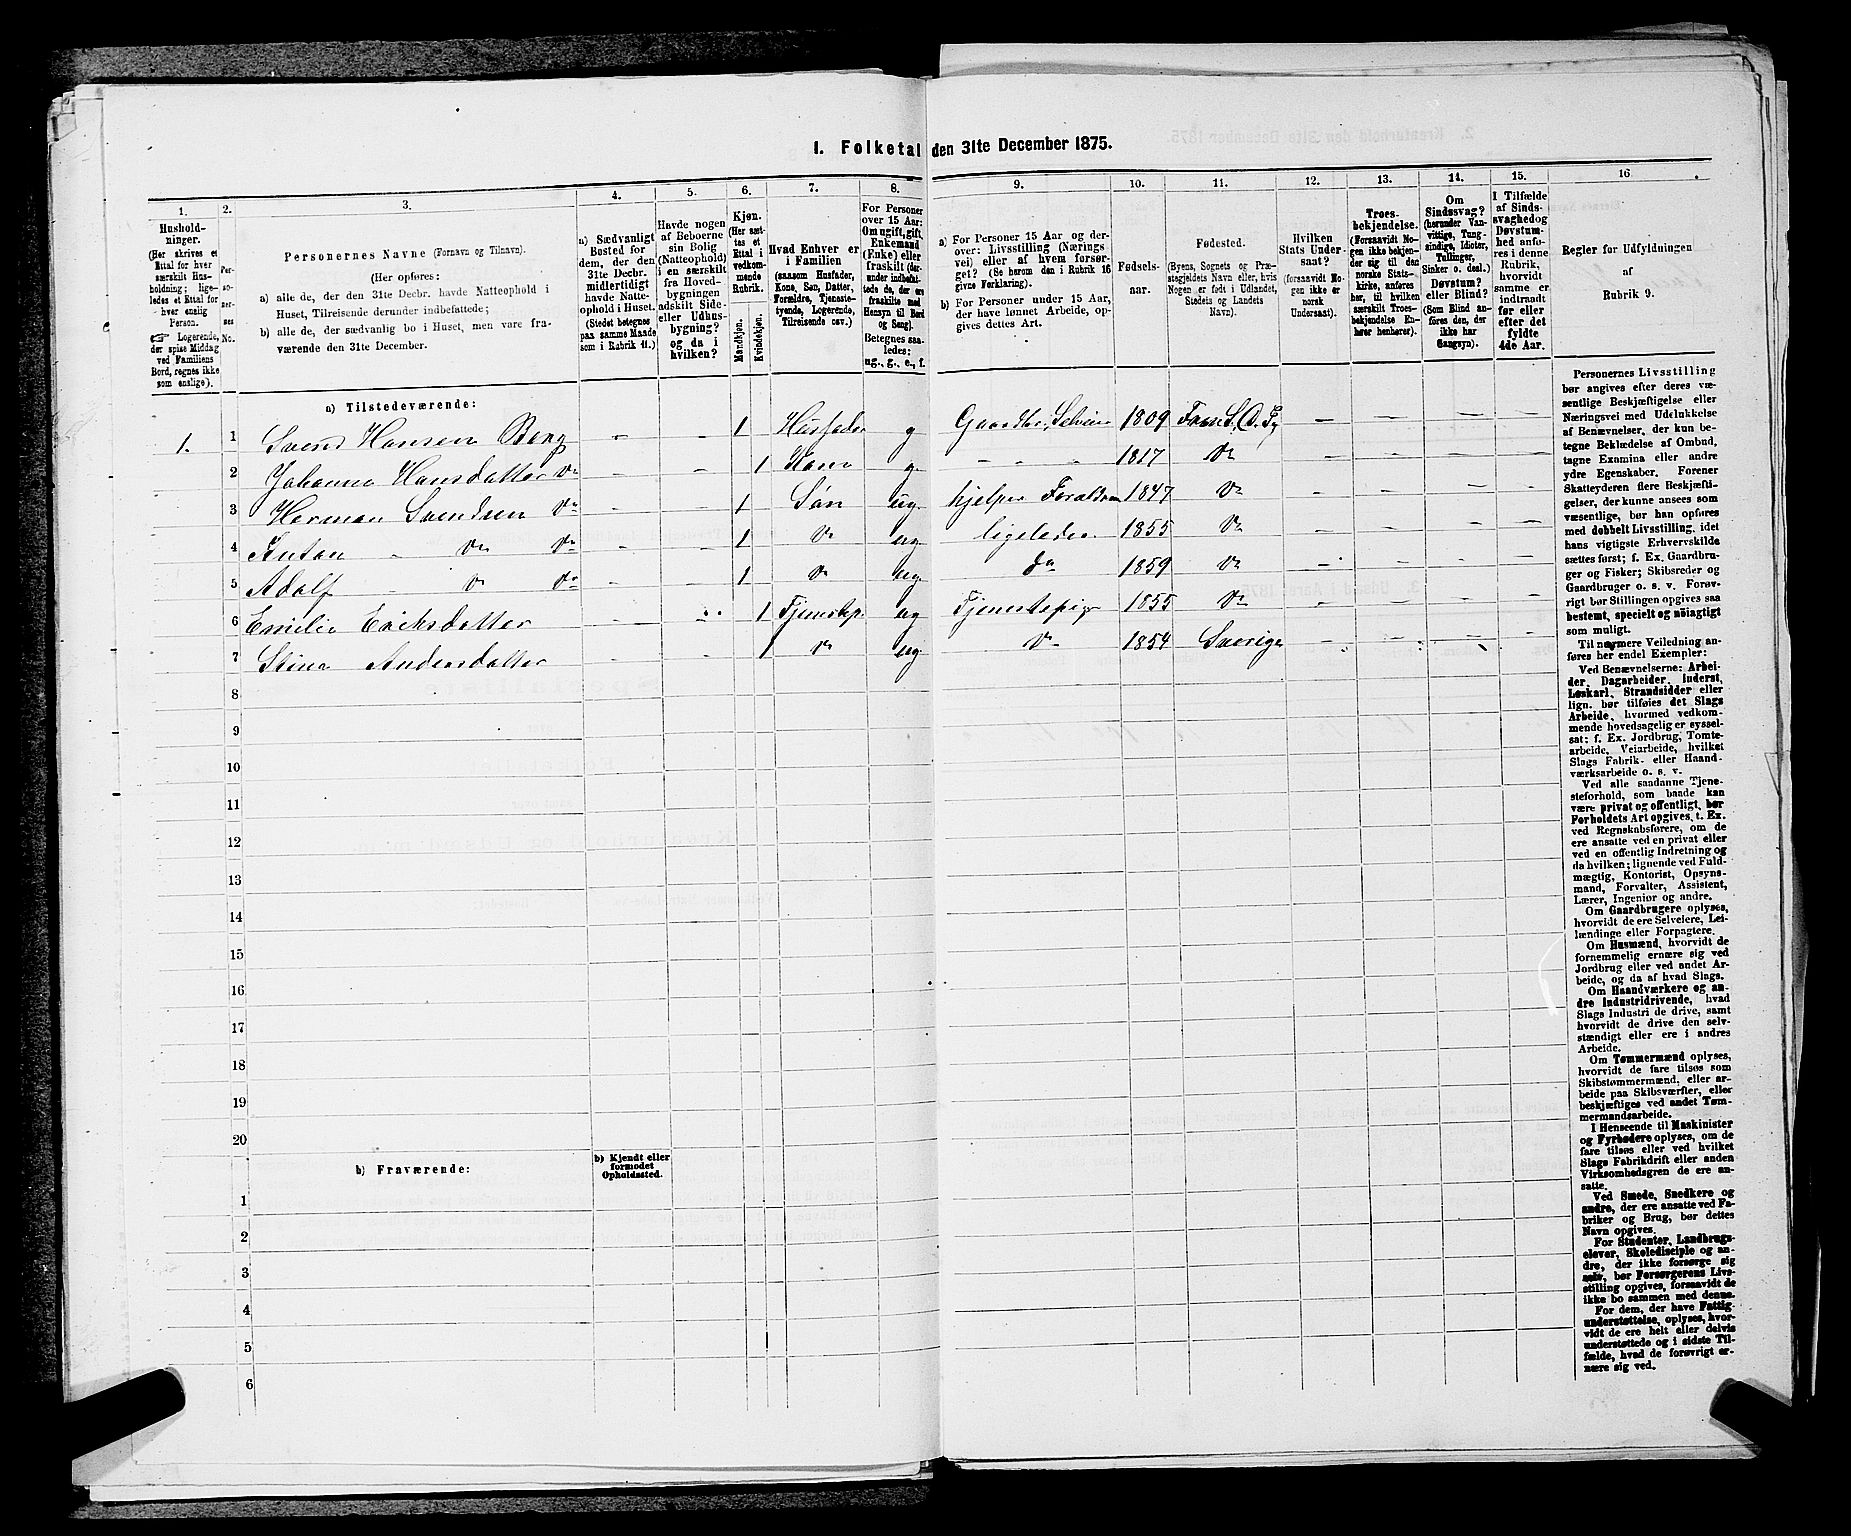 1. Folketal den 31te December 1875.
1.
Husholdninger.
(Her skrives et
Ettal for hver
særskilt Husholdning; ligeledes
et Ettal for
hver enslig
Person.
☞ Logerende,
der spise Middag
ved Familiens
Bord, regnes ikke
som enslige).
2.
Personernes
No.
3.
Personernes Navne (Fornavn og Tilnavn).
(Her opføres:
a) alle de, der den 31te Decbr. havde Natteophold i
Huset, Tilreisende derunder indbefattede;
b) alle de, der sædvanlig bo i Huset, men vare fraværende
den 31te December.
4.
a) Sædvanligt
Bosted for
dem, der den
31te Decbr.
midlertidigt
havde Natteophold
i Huset.
(Stedet betegnes
paa samme Maade
som i Rubrik 11.)
5.
Havde nogen
af Beboerne
sin Bolig
(Natteophold)
i en særskilt
fra Hovedbygningen
adskilt Side-
eller Udhusbygning?
og da i
hvilken?
6.
Kjøn.
(Her sættes
et
Ettal i
vedkommende
Rubrik.
Mandkjøn.
Kvindekjøn.
7.
Hvad Enhver er
i Familien
(saasom Husfader,
Kone, Søn, Datter,
Forældre, Tjenestetyende,
Logerende,
Tilreisende osv.)
8.
For Personer
over 15 Aar:
Om ugift, gift,
Enkemand
(Enke) eller
fraskilt (derunder
indbefattede
de, der ere
fraskilte med
Hensyn til Bord
og Seng).
Betegnes saaledes:
ug., g., e., f.
9.
a) For Personer 15 Aar og derover:
Livsstilling (Næringsvei)
eller af hvem forsørget?
(Se herom den i Rubrik 16
givne Forklaring).
b) For Personer under 15 Aar,
der have lønnet Arbeide, opgives
dettes Art.
10.
Fødselsaar.
11.
Fødested.
(Byens, Sognets og Præstegjeldets
Navn eller, hvis
Nogen er født i Udlandet,
Stedets og Landets
Navn).
12.
Hvilken
Stats Undersaat?
(forsaavidt Nogen
ikke er
norsk
Undersaat).
13.
Troesbekjendelse.
(Forsaavidt Nogen
ikke bekjender
sig til den
norske Statskirke,
anføres
her, til hvilken
særskilt Troesbekjendelse
Enhver
henhører).
14.
Om
Sindssvag?
(herunder Vanvittige,
Tungsindige,
Idioter,
Tullinger,
Sinker o. desl.)
Døvstum?
eller Blind?
(Som Blind anføres
den, der
ikke har
Gangsyn).
15.
I Tilfælde
af Sindssvaghed
og
Døvstumhed
anføres
i denne
Rubrik,
hvorvidt
samme er
indtraadt
før eller
efter det
fyldte
4de Aar.
16
Regler for Udfyldningen
af
Rubrik 9.
a) Tilstedeværende:
1. 1 Svend Hansen Berg - - 1 Husfader g Gaardbr. Selveier 1809 - - - -
2 Johanne Hansdatter Do - - 1 Kone g. - - - 1817 Do - - - -
3 Herman Svendsen Do - - 1 Søn ug. hjelper Forældrene 1847 Do - - - -
4 Anton - Do Do - - 1 Do ug ligeledes 1855 Do - - - -
5 Adolf - Do Do - - 1 Do ug. do 1859 Do - - - -
6 Emilie Eriksdatter - 1 Tjenestep. ug Tjenestepige 1855 Do - - - -
7 Stina Andersdatter - - 1 Do ug Do 1854 Sverige - - -
8
9
10
11
12
13
14
15
16
17
18
19
20
b) Fraværende:
b) Kjendt eller
formodet
Opholdssted.
1
2
3
4
5
6
Personernes Livsstilling
bør angives efter deres væsentlige
Beskjæftigelse eller
Næringsvei med Udelukkelse
af Benævnelser, der kun betegne
Beklædelse af Ombud,
tagne Examina eller andre
ydre Egenskaber. Forener
Skatteyderen flere Beskjæftigelser,
der kunne ansees som
væsentlige, bør han opføres
med dobbelt Livsstilling, idet
hans vigtigste Erhvervskilde
sættes først; f. Ex. Gaardbruger
og Fisker; Skibsreder og
Gaardbruger o. s. v. Forøvrigt
bør Stillingen opgives saa
bestemt, specielt og nöiagtigt
som muligt.
Til nærmere Veiledning anføres
her endel Exempler:
Ved Benævnelserne: Arbeider,
Dagarbeider, Inderst,
Løskarl, Strandsidder eller
lign. bør tilføies det Slags
Arbeide, hvormed vedkommende
hovedsagelig er sysselsat:
f. Ex. Jordbrug, Tomtearbeide,
Veiarbeide, hvilket
Slags Fabrik- eller Haandværksarbeide
o. s. v.
Ved alle saadanne Tjenesteforhold,
som baade kan
være privat og offentligt, bør
Forholdets Art opgives, t. Ex.
ved Regnskabsførere, om de
ere ansatte ved en privat eller
ved en offentlig Indretning og
da hvilken; lignende ved Fuldmægtig,
Kontorist, Opsynsmand,
Forvalter, Assistent,
Lærer, Ingeniør og andre.
Om Gaardbrugere oplyses,
hvorvidt de ere Selveiere, Leilændinge
eller Forpagtere.
Om Husmænd, hvorvidt de
fornemmelig ernære sig ved
Jordbrug eller ved andet Arbeide,
og da af hvad Slags.
Om Haandværkere og andre
Industridrivende, hvad
Slags Industri de drive, samt
hvorvidt de drive den selvstændigt
eller ere i andres
Arbeide.
Om Tømmermænd oplyses,
hvorvidt de fare tilsøs som
Skibstømmermænd, eller arbeide
paa Skibsværfter, eller
beskjæftiges ved andet Tømmermandsarbeide.
I Henseende til Maskinister
og Fyrbødere oplyses, om de
fare tilsøs eller ved hvilket
Slags Fabrikdrift eller anden
Virksomhedsgren de ere ansatte.
Ved Smede, Snedkere og
andre, der ere ansatte ved Fabriker
og Brug, bør dettes
Navn opgives.
For Studenter, Landbrugselever,
Skoledisciple og andre,
der ikke forsørge sig
selv, bør Forsørgerens Livsstilling
opgives, forsaavidt de
ikke bo sammen med denne.
For dem, der have Fattigunderstøttelse,
oplyses, hvorvidt
de ere helt eller delvis
understøttede og i sidste Tilfælde,
hvad de forøvrigt ernære
sig ved.